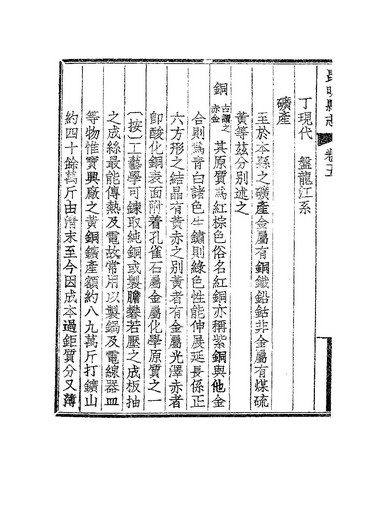 昆明縣志 卷五
丁現代 盤龍江系
礦產
至於本縣之礦產金屬有銅鐵鉛鈷非金屬有煤硫
黃等茲分別述之
銅 古謂之赤金 其原質爲紅棕色俗名紅銅亦稱紫銅與他金
合則爲靑白諸色生鏽則綠色性能伸展延長係正
六方形之結晶有黃赤之別黃者有金屬光澤赤者
卽酸化銅表面附着孔雀石屬金屬化學原質之一
〔按〕工藝學可鍊取純銅或製膽礬若壓之成板抽
之成絲最能傳熱及電故常用以製鍋及電線器皿
等物惟寶興廠之黃銅鑛產額約八九萬斤打鑛山
約四十餘萬斤由淸末至今因成本過鉅質分又薄